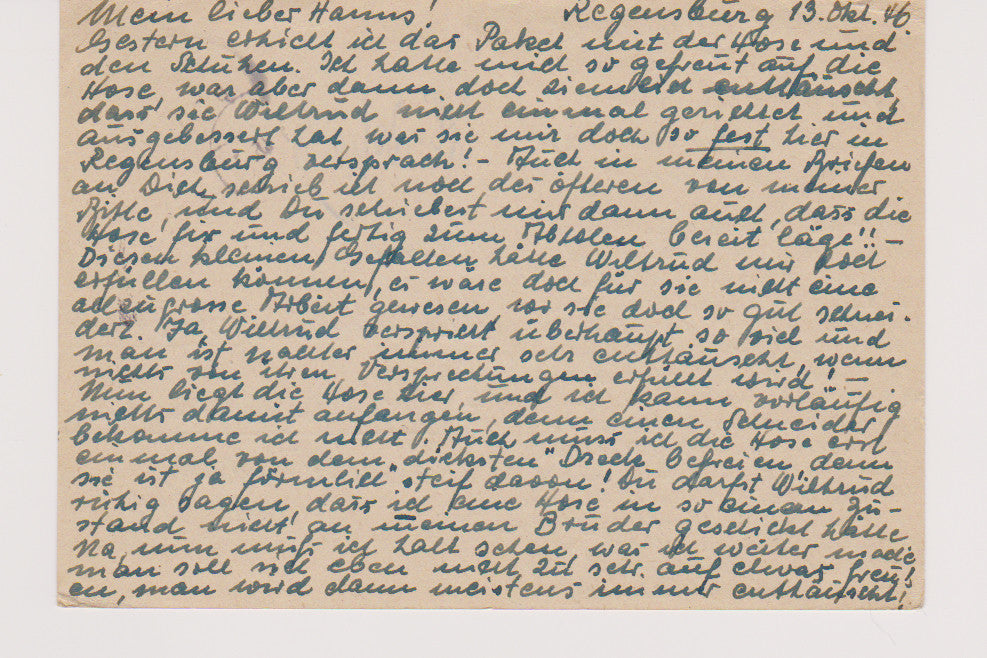 Mein lieber Hanns! Regensburg 13. Okt. 46
Gestern erhielt ich das Paket mit der Hose und
den Schuhen. Ich hatte mich so gefreut auf die
Hose, war aber dann doch ziemlich enttäuscht,
dass sie Wiltrud nicht einmal gerichtet und
ausgebessert hat was sie mir doch so fest hier in
Regensburg versprach! – Auch in meinen Briefen
an Dich schrieb ich noch des öfteren von meiner
Bitte, und Du schriebest mir dann auch, dass die
Hose fix und fertig zum Abholen bereit läge!! –
Diesen kleinen Gefallen hätte Wiltrud mir doch
erfüllen können, es wäre doch für sie nicht eine
allzugrosse Arbeit gewesen wo sie doch so gut schnei-
dert. Ja, Wiltrud verspricht überhaupt so viel und
man ist nachher immer sehr enttäuscht, wenn
nichts von ihren Versprechungen erfüllt wird! –
Nun liegt die Hose hier, und ich kann vorläufig
nichts damit anfangen, denn einen Schneider
bekomme ich nicht. Auch muss ich die Hose erst
einmal von dem „dicksten" Dreck befreien, denn
sie ist ja förmlich steif davon! Du darfst Wiltrud
ruhig sagen, dass ich eine Hose in so einem Zu-
stand nicht an meinen Bruder geschickt hätte.
Na, nun muß ich halt sehen, was ich weiter mache,
man soll sich eben nicht zu sehr auf etwas freu-
en, man wird dann meistens immer enttäuscht!